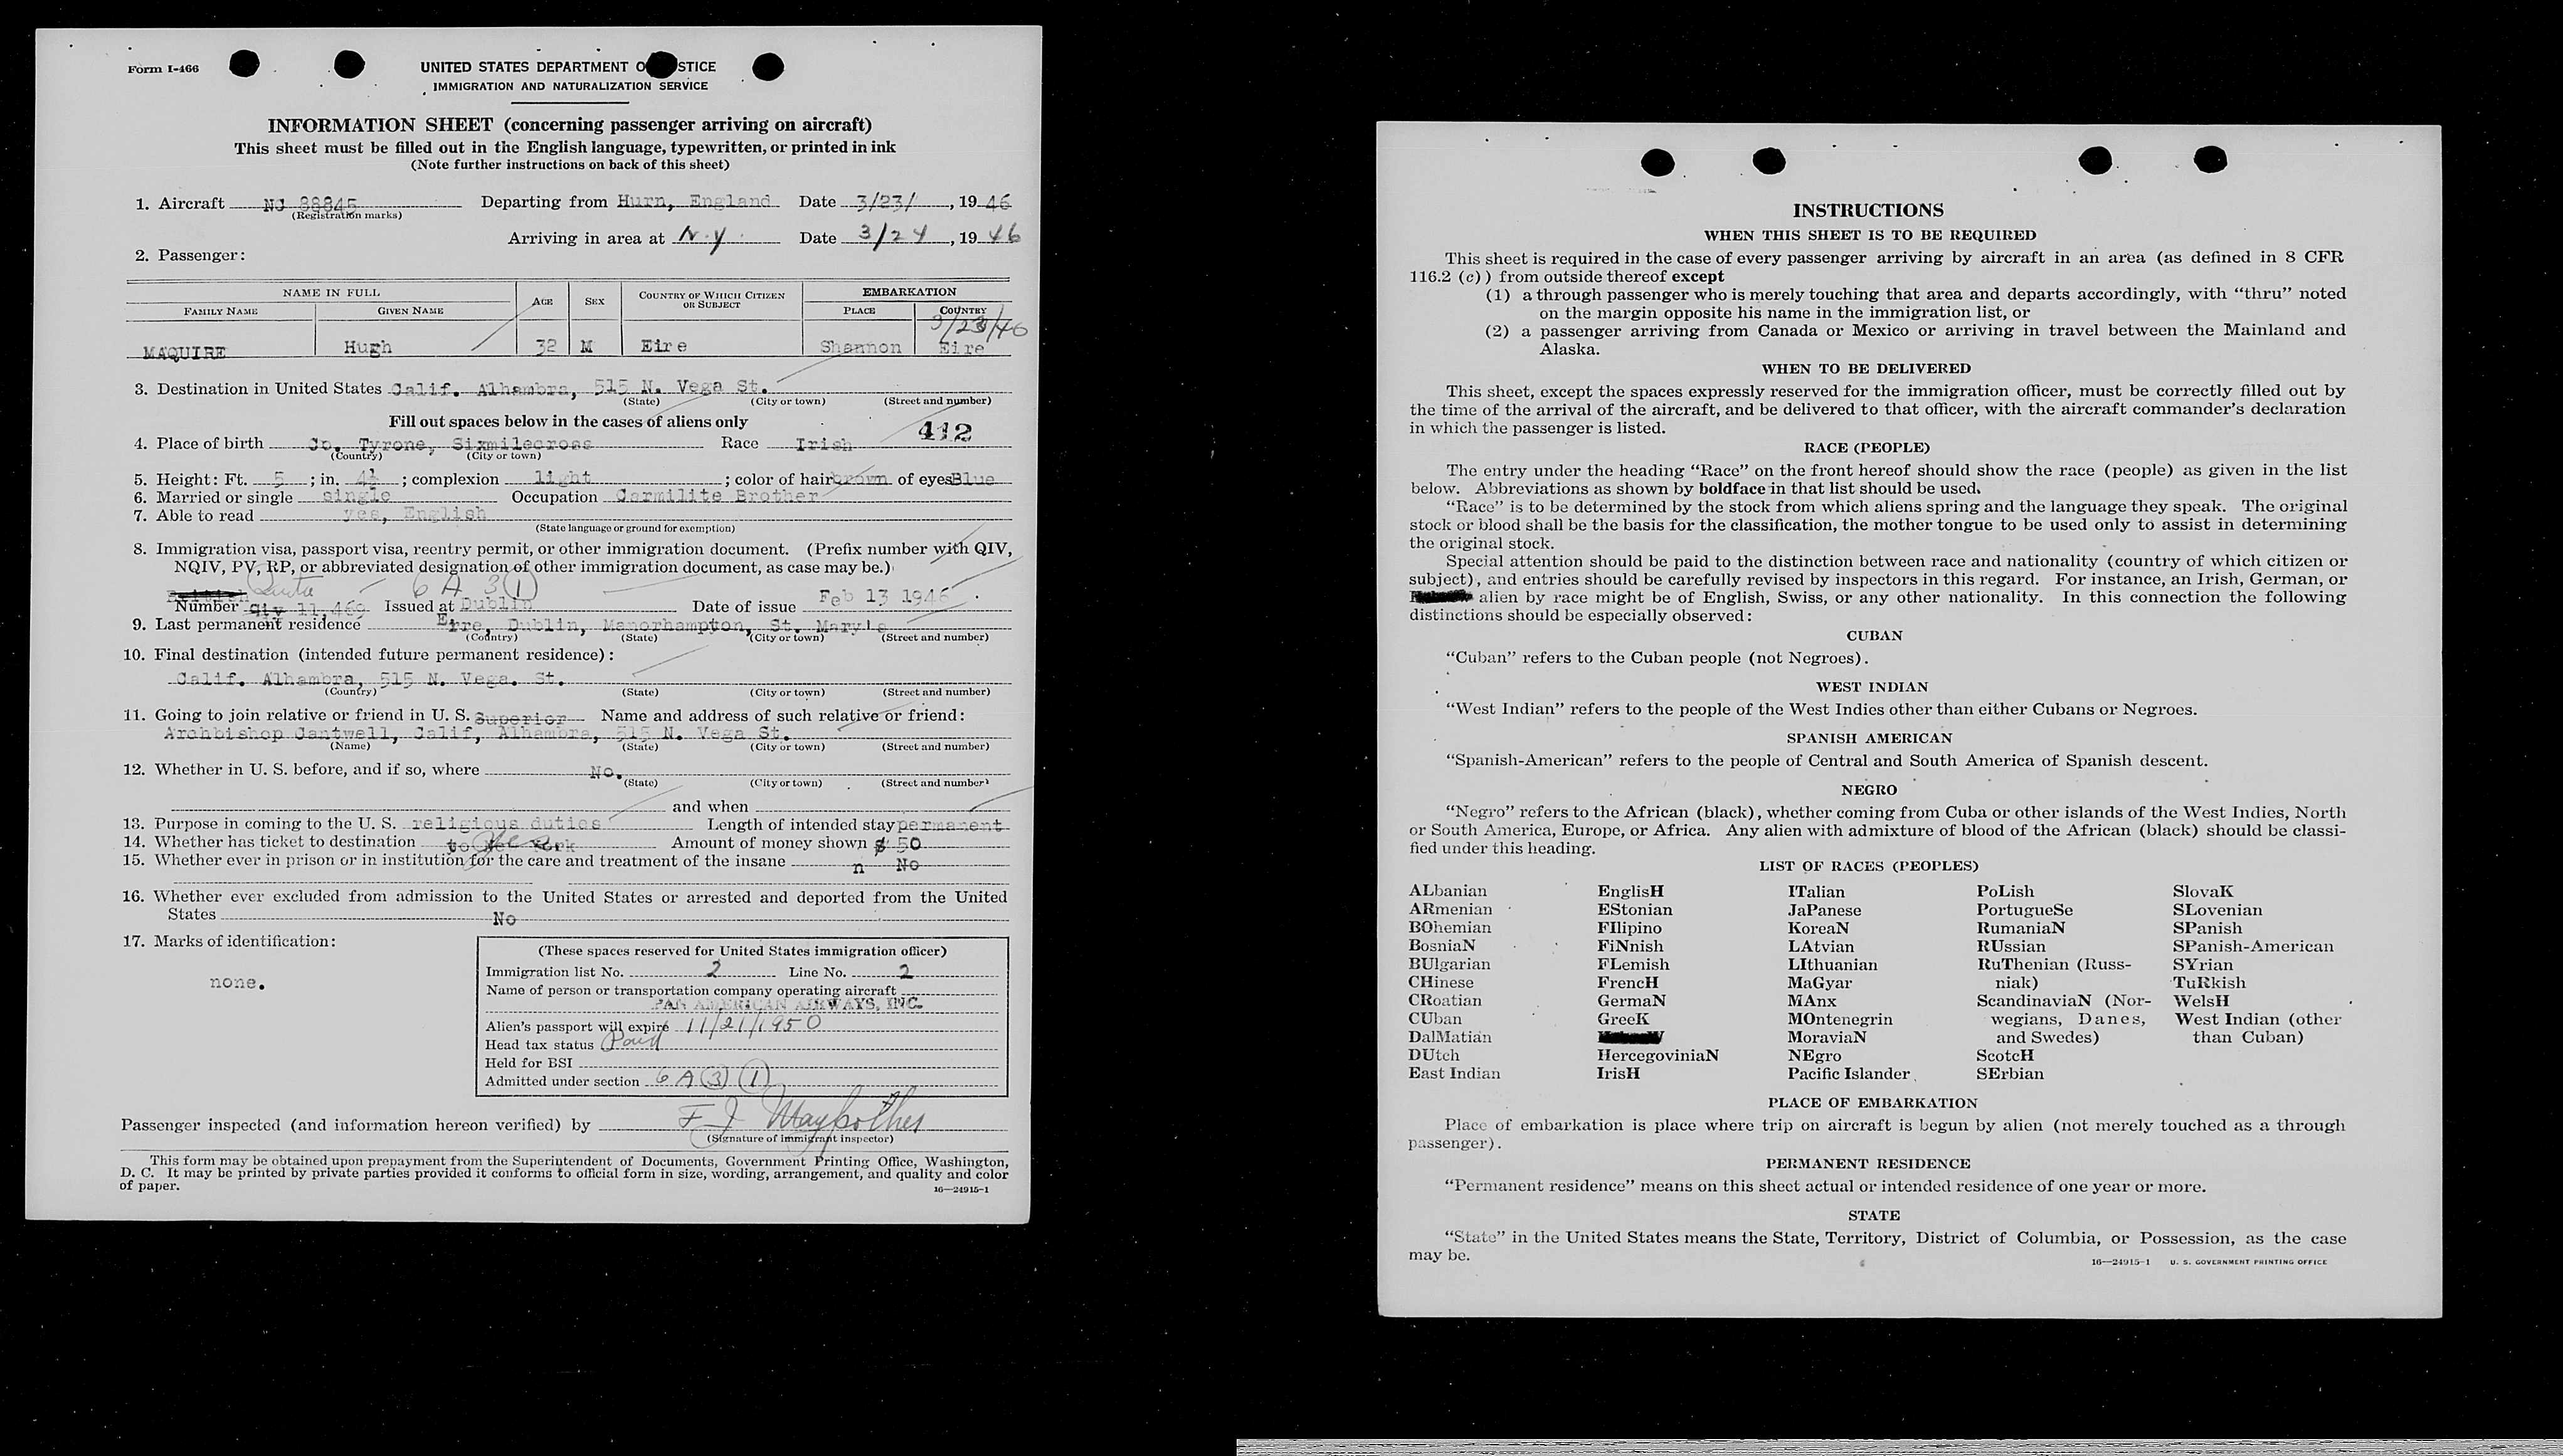 Form I-466
UNITED STATES DEPARTMENT O STICE
IMMIGRATION AND NATURALIZATION SERVICE
INFORMATION SHEET (concerning passenger arriving on aircraft)
This sheet must be filled out in the English language, typewritten, or printed in ink
(Note further instructions on back of this sheet)
1. Aircraft NC 88845 Departing from Hurn, England Date 3/23/, 1946
(Registration marks)
Arriving in area at N.Y. Date 3/24, 1946
2. Passenger:
NAME IN FULL AGE SEX COUNTRY OF WHICH CITIZEN OR SUBJECT EMBARKATION
FAMILY NAME GIVEN NAME PLACE COUNTRY
3/23/46
MAQUIRE Hugh 32 M Eire Shannon Eire
3. Destination in United States Calif. Alhambra, 515 N. Vega St.
(State) (City or town) (Street and number)
Fill out spaces below in the cases of aliens only
412
4. Place of birth Co. Tyrone, Sixmilecross Race Irish
(Country) (City or town)
5. Height: Ft. 5; in. 4½; complexion light; color of hair brown of eyes Blue
6. Married or single single Occupation Carmilite Brother
7. Able to read yes, English
(State language or ground for exemption)
8. Immigration visa, passport visa, reentry permit, or other immigration document. (Prefix number with QIV,
NQIV, PV, RP, or abbreviated designation of other immigration document, as case may be.)
Quota 6 A 3 (1)
Number Qiv 11,469 Issued at Dublin Date of issue Feb 13 1946
9. Last permanent residence Eire, Dublin, Manorhampton, St. Mary's
(Country) (State) (City or town) (Street and number)
10. Final destination (intended future permanent residence):
Calif. Alhambra, 515 N. Vega. St.
(Country) (State) (City or town) (Street and number)
11. Going to join relative or friend in U. S. Superior Name and address of such relative or friend:
Archbishop Cantwell, Calif, Alhambra, 515 N. Vega St.
(Name) (State) (City or town) (Street and number)
12. Whether in U. S. before, and if so, where No.
(State) (City or town) (Street and number)
and when
13. Purpose in coming to the U. S. religious duties Length of intended stay permanent
14. Whether has ticket to destination to York Amount of money shown $ 50
15. Whether ever in prison or in institution for the care and treatment of the insane n No
16. Whether ever excluded from admission to the United States or arrested and deported from the United
States No
17. Marks of identification:
none.
(These spaces reserved for United States immigration officer)
Immigration list No. 2 Line No. 2
Name of person or transportation company operating aircraft
PAN AMERICAN AIRWAYS, INC.
Alien's passport will expire 11/21/1950
Head tax status Paid
Held for BSI
Admitted under section 6 A (3) (1)
Passenger inspected (and information hereon verified) by F J
(Signature of immigrant inspector)
This form may be obtained upon prepayment from the Superintendent of Documents, Government Printing Office, Washington,
D. C. It may be printed by private parties provided it conforms to official form in size, wording, arrangement, and quality and color
of paper.
16—24915-1
INSTRUCTIONS
WHEN THIS SHEET IS TO BE REQUIRED
This sheet is required in the case of every passenger arriving by aircraft in an area (as defined in 8 CFR
116.2 (c)) from outside thereof except
(1) a through passenger who is merely touching that area and departs accordingly, with "thru" noted
on the margin opposite his name in the immigration list, or
(2) a passenger arriving from Canada or Mexico or arriving in travel between the Mainland and
Alaska.
WHEN TO BE DELIVERED
This sheet, except the spaces expressly reserved for the immigration officer, must be correctly filled out by
the time of the arrival of the aircraft, and be delivered to that officer, with the aircraft commander's declaration
in which the passenger is listed.
RACE (PEOPLE)
The entry under the heading "Race" on the front hereof should show the race (people) as given in the list
below. Abbreviations as shown by boldface in that list should be used.
"Race" is to be determined by the stock from which aliens spring and the language they speak. The original
stock or blood shall be the basis for the classification, the mother tongue to be used only to assist in determining
the original stock.
Special attention should be paid to the distinction between race and nationality (country of which citizen or
subject), and entries should be carefully revised by inspectors in this regard. For instance, an Irish, German, or
alien by race might be of English, Swiss, or any other nationality. In this connection the following
distinctions should be especially observed:
CUBAN
"Cuban" refers to the Cuban people (not Negroes).
WEST INDIAN
"West Indian" refers to the people of the West Indies other than either Cubans or Negroes.
SPANISH AMERICAN
"Spanish-American" refers to the people of Central and South America of Spanish descent.
NEGRO
"Negro" refers to the African (black), whether coming from Cuba or other islands of the West Indies, North
or South America, Europe, or Africa. Any alien with admixture of blood of the African (black) should be classi-
fied under this heading.
LIST OF RACES (PEOPLES)
ALbanian EnglisH ITalian PoLish SlovaK
ARmenian EStonian JaPanese PortugueSe SLovenian
BOhemian FIlipino KoreaN RumaniaN SPanish
BosniaN FiNnish LAtvian RUssian SPanish-American
BUlgarian FLemish LIthuanian RuThenian (Russ- SYrian
CHinese FrencH MaGyar niak) TuRkish
CRoatian GermaN MAnx ScandinaviaN (Nor- WelsH
CUban GreeK MOntenegrin wegians, Danes, West Indian (other
DalMatian MoraviaN and Swedes) than Cuban)
DUtch HercegoviniaN NEgro ScotcH
East Indian IrisH Pacific Islander SErbian
PLACE OF EMBARKATION
Place of embarkation is place where trip on aircraft is begun by alien (not merely touched as a through
passenger).
PERMANENT RESIDENCE
"Permanent residence" means on this sheet actual or intended residence of one year or more.
STATE
"State" in the United States means the State, Territory, District of Columbia, or Possession, as the case
may be.
16—24915-1 U. S. GOVERNMENT PRINTING OFFICE